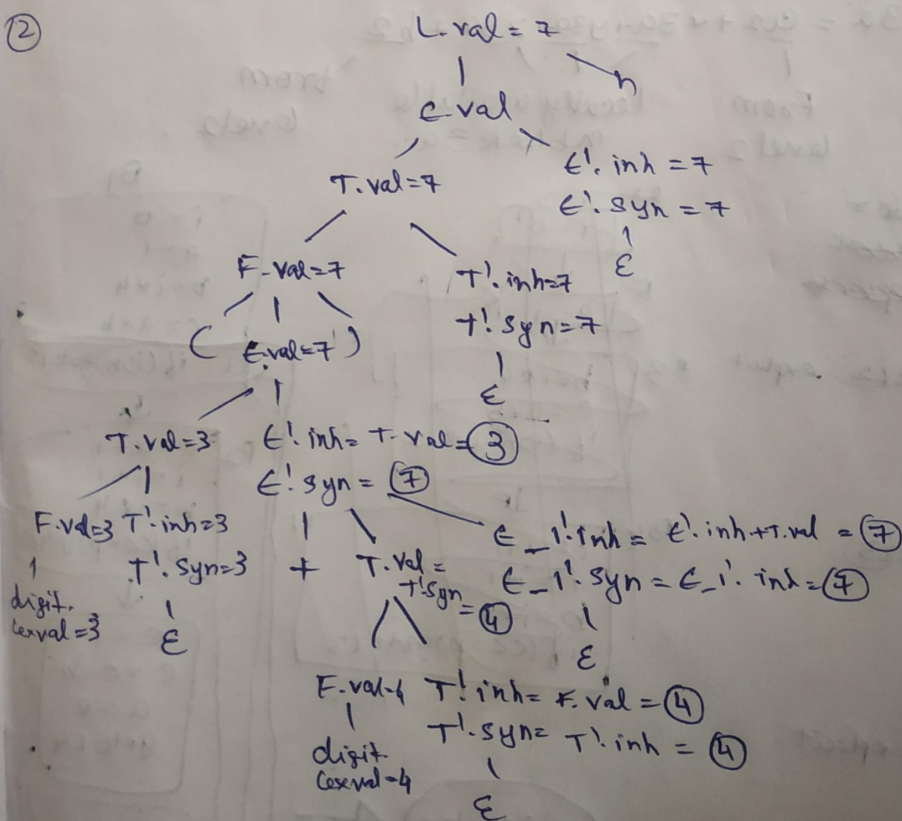 ②
L.val = 7
n
E.val
T.val=7
E'. inh = 7
E'. Syn = 7
ε
F.val=7
T'. inh=7
T'. Syn=7
ε
( E.val=7 )
T.val=3 E'. inh = T.val = ③
E'. Syn = ⑦
F.val=3 T'. inh=3
T'. Syn=3
ε
digit.
lexval=3
+ T.val =
T'. Syn
= ④
E_1'. inh = E'. inh+T.val = ⑦
E_1'. Syn = E_1'. inh = ⑦
ε
F.val=4 T'. inh = F.val = ④
T'. Syn = T'. inh = ④
ε
digit.
lexval=4